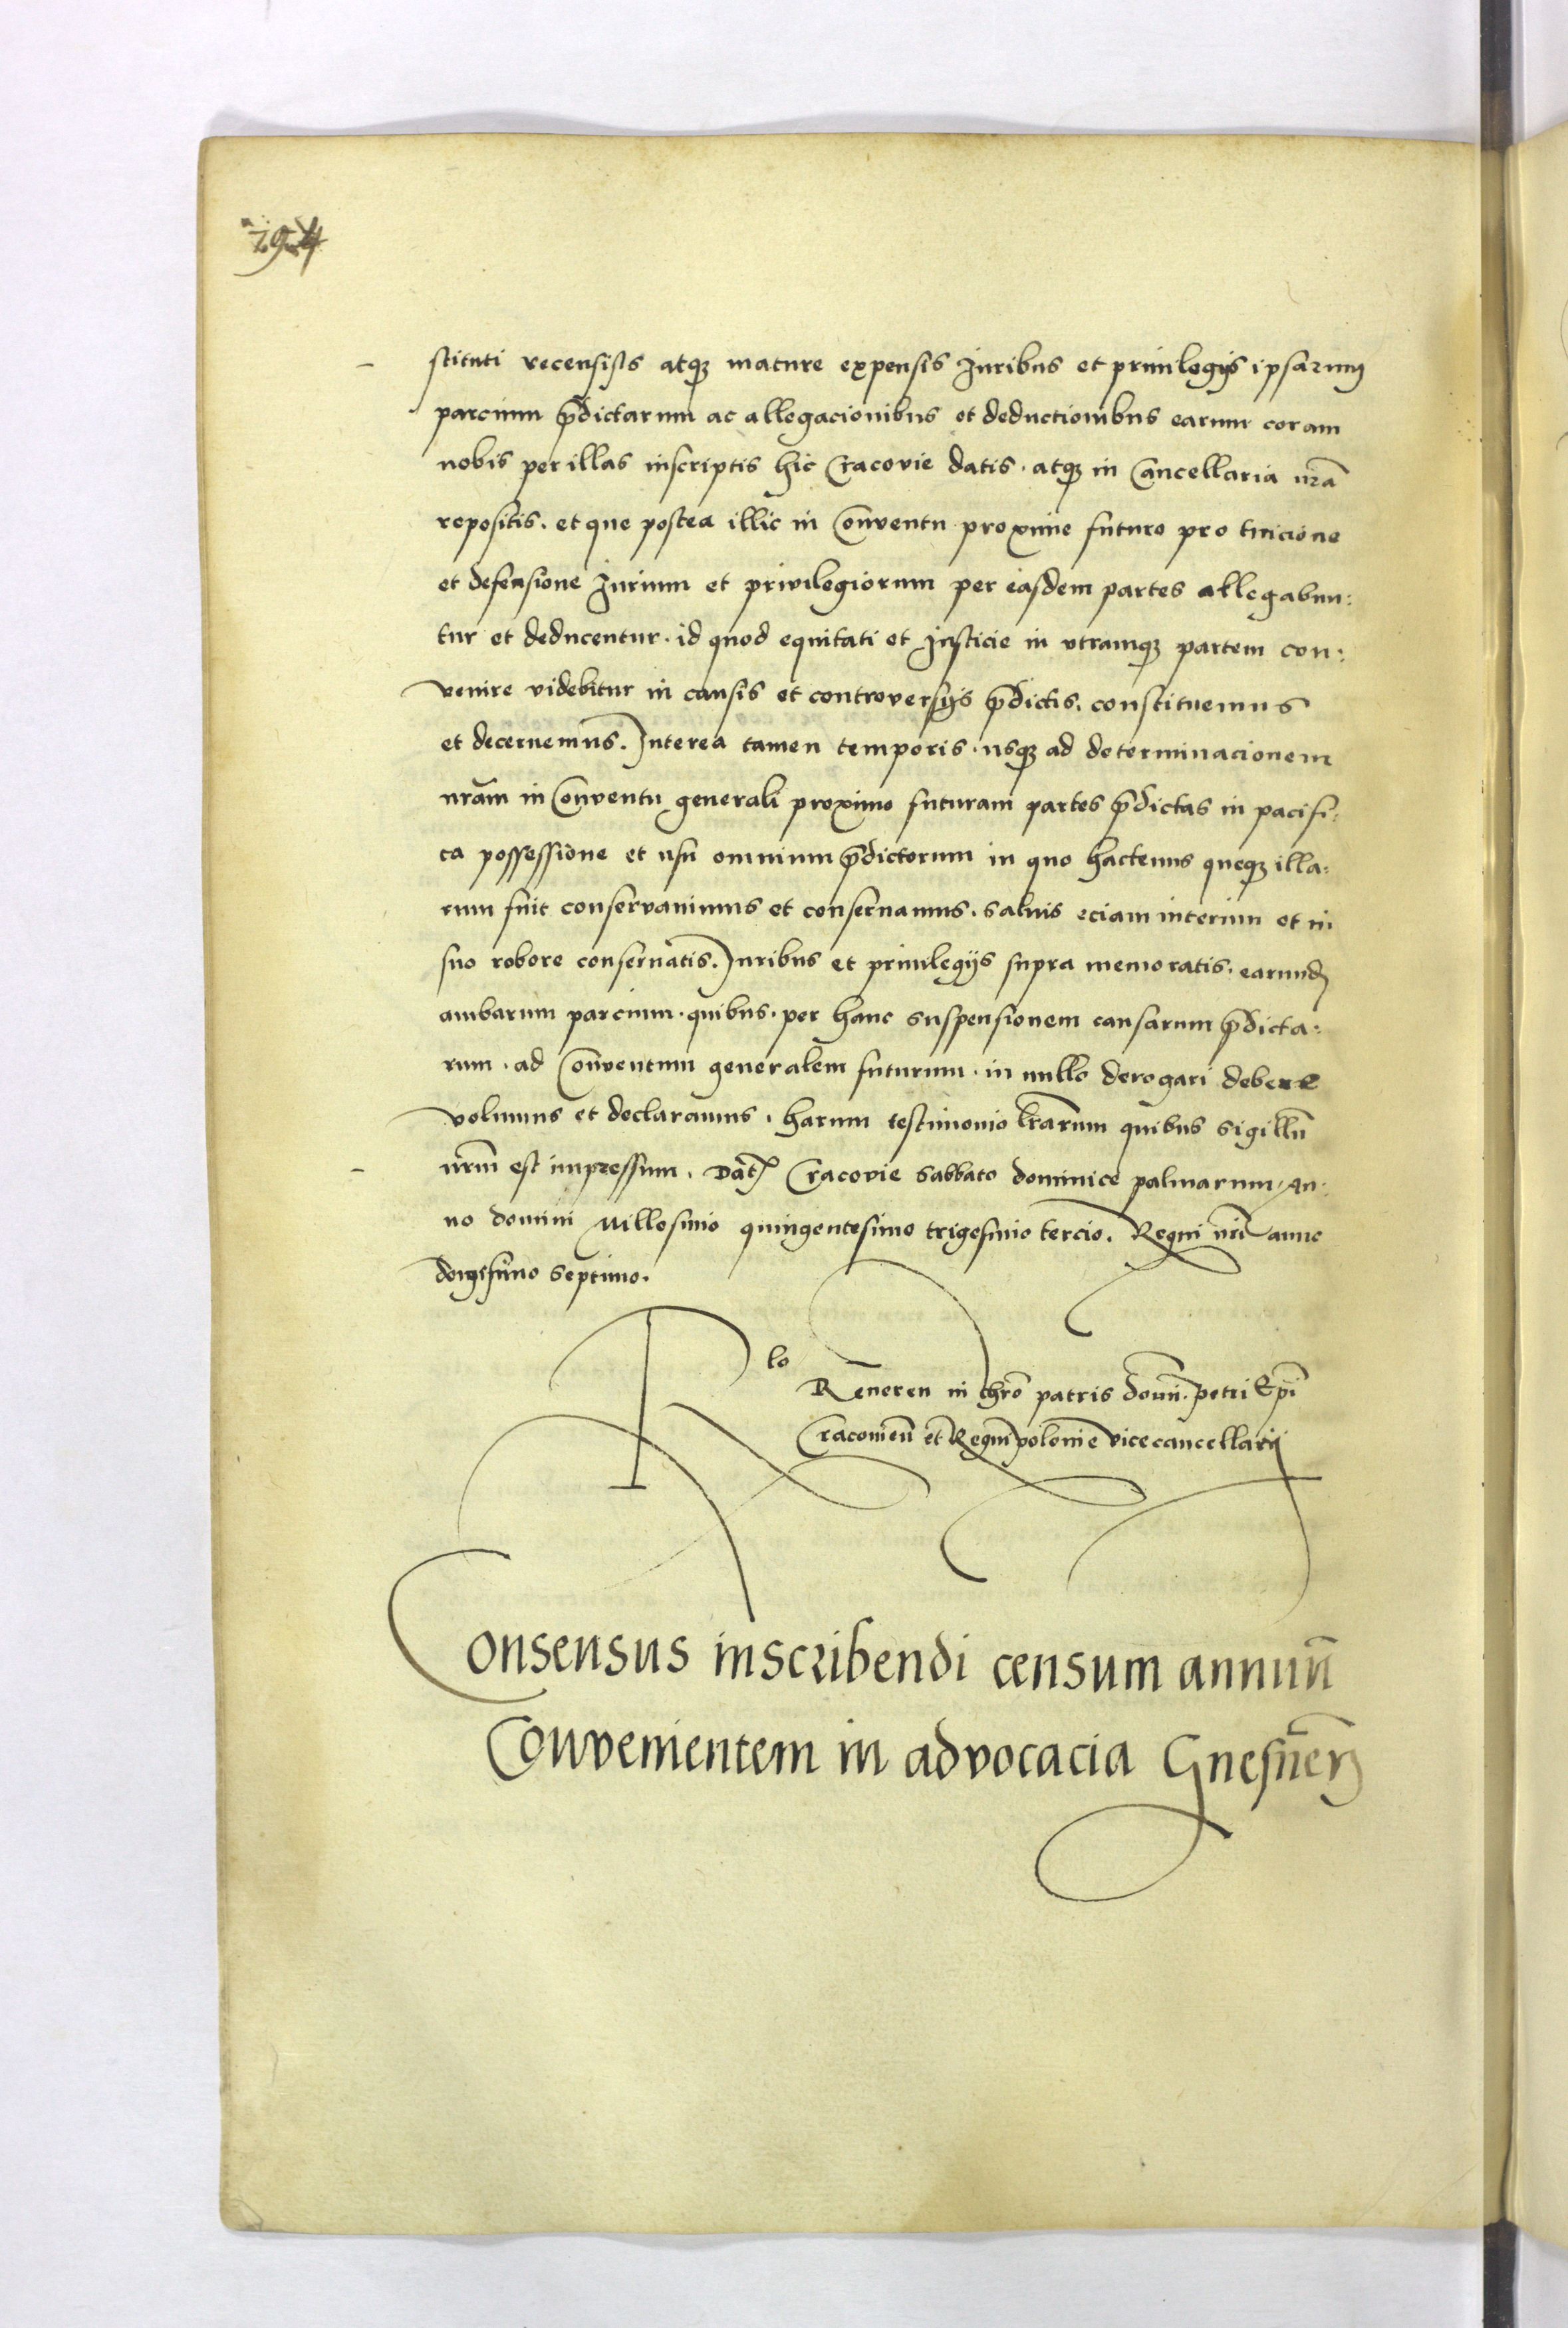 294
stituti recensitis atq mature expensis Juribus et privilegijs ipsarum
parcium p̄dictarum ac allegacionibus et deductionibus earum coram
nobis per illas inscriptis hic Cracovie datis. atq in Cancellaria nr̄a
repositis. et que postea illic in Conventu proxime futuro pro tuicione
et defensione Jurium et privilegiorum per easdem partes allegabun:
tur et deducentur. id quod equitati et Justicie in vtramq partem con:
venire videbitur in causis et controversijs p̄dictis. constituemus
et decernemus. Interea tamen temporis. usq ad determinacionem
nr̄am in Conventu generali proximo futuram partes p̄dictas in pacifi:
ca possessione et usu omnium p̄dictorum in quo hactenus queq illa:
rum fuit conservavimus et conservamus. salvis eciam interim et in
suo robore conservatis. Juribus et privilegijs supra memoratis. earund
ambarum parcium. quibus. per hanc suspensionem causarum p̄dicta:
rum. ad Conventum generalem futurum. in nullo derogari debere
volumus et declaramus. harum testimonio lr̄arum quibus sigillū
nr̄m est impressum. Dat Cracovie Sabbato dominice palmarum. An:
no domini Millesimo quingentesimo trigesimo tercio. Regni nr̄i anno
vigesimo septimo.
Rlo
R̄everen in chr̄o patris domī. petri Ep̄i
Cracovieñ et Regni polonie vicecancellarij
Consensus inscribendi censum annuū
Convenientem in advocacia Gnesneñ